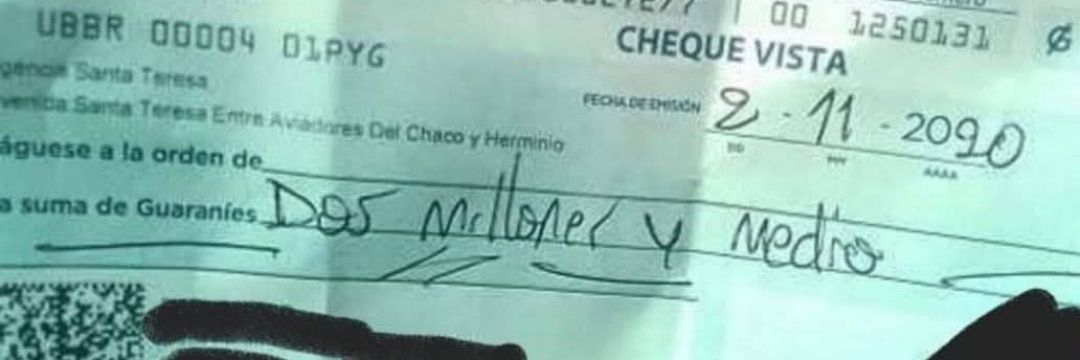 00 1250131 ₲
UBBR 00004 01PYG
CHEQUE VISTA
gencia Santa Teresa
venida Santa Teresa Entre Aviadores Del Chaco y Herminio
FECHA DE EMISIÓN 2 - 11 - 2090
DD MM AAAA
águese a la orden de
a suma de Guaraníes Dos Millones y Medio